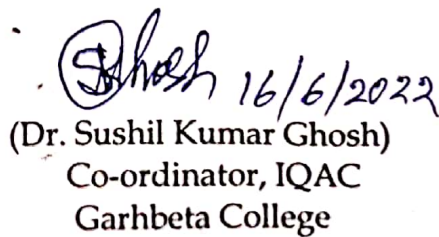 SKGhosh 16/6/2022
(Dr. Sushil Kumar Ghosh)
Co-ordinator, IQAC
Garhbeta College